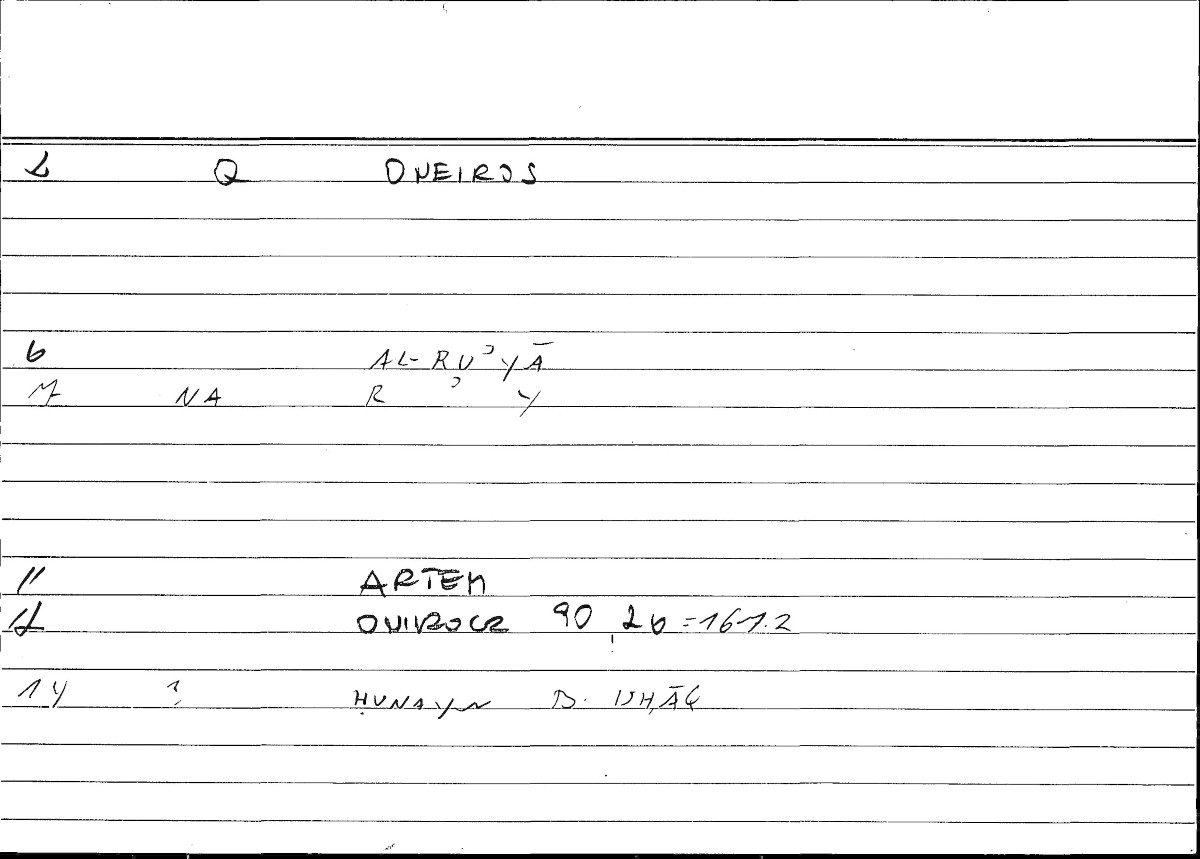 2 Q ONEIROS
6 AL-RUʾYĀ
7 NA R ʾ Y
11 ARTEM
12 ONIROCR 90, 26=161.2
14 1 ḤUNAYN B. ISḤĀQ